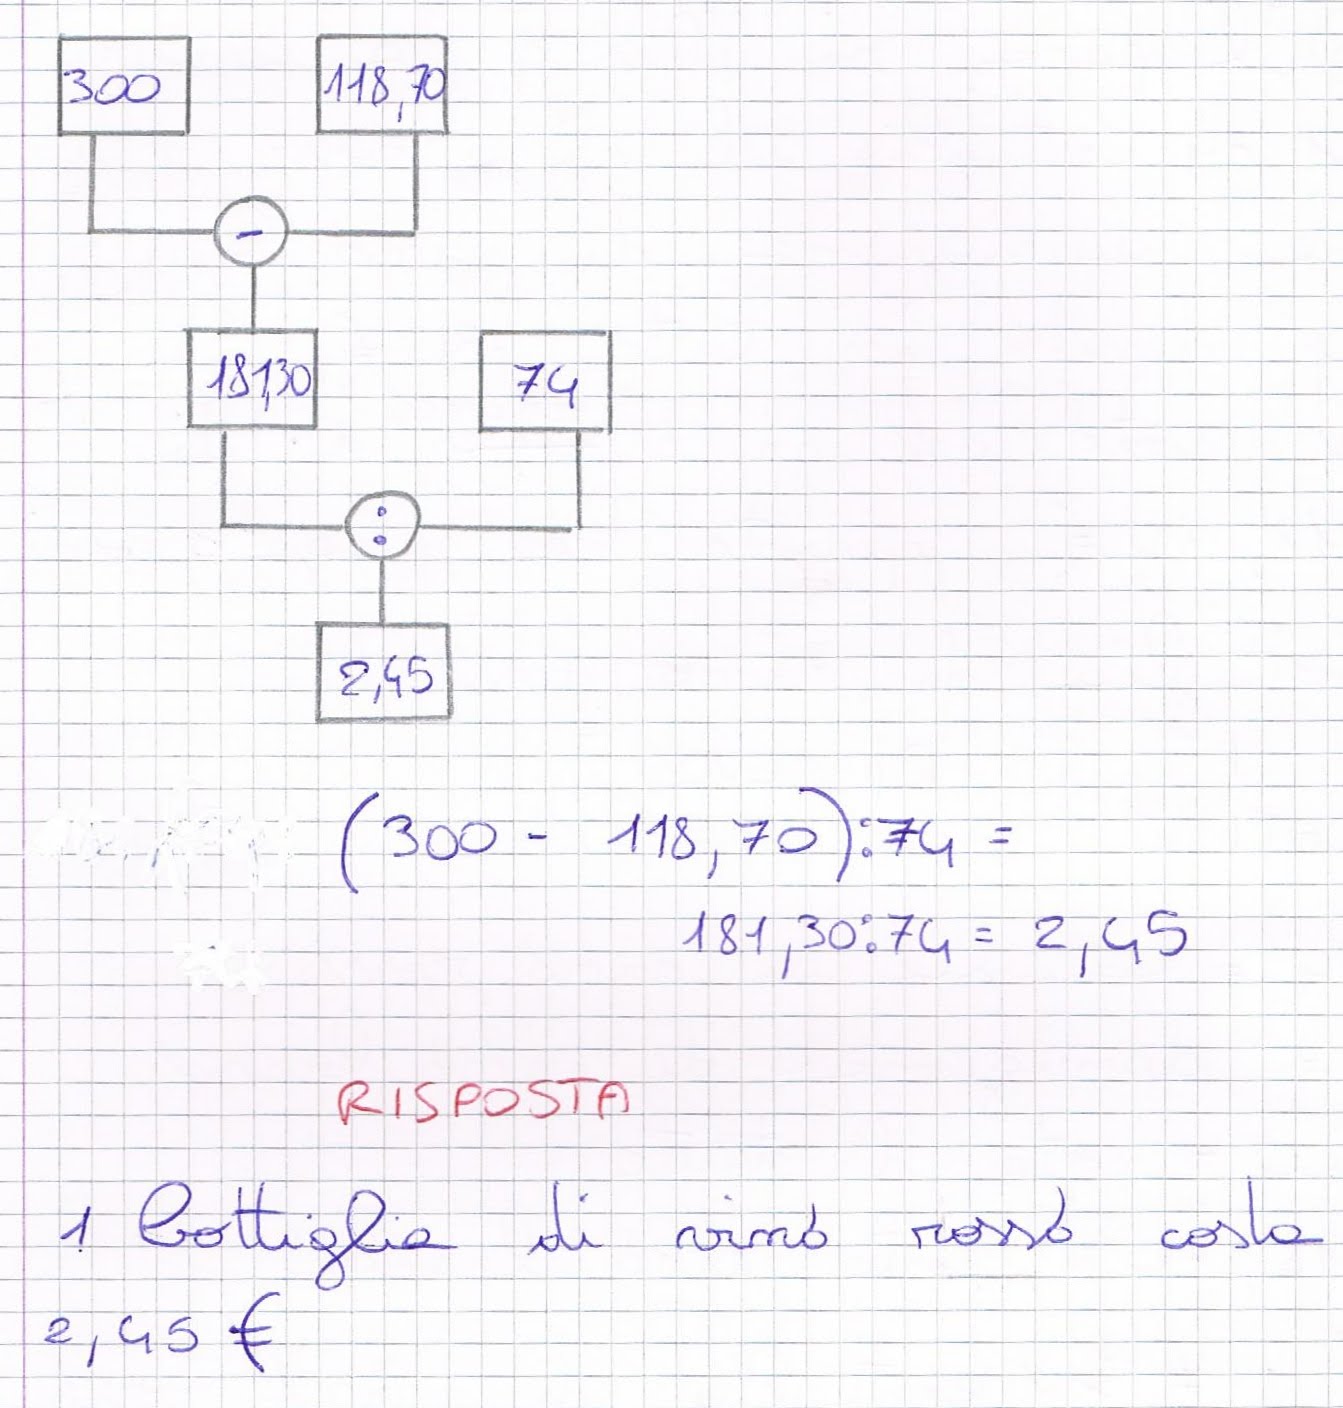 300 118,70
-
181,30 74
:
2,45
(300 - 118,70):74 =
181,30:74 = 2,45
RISPOSTA
1 bottiglia di vino rosso costa
2,45 €